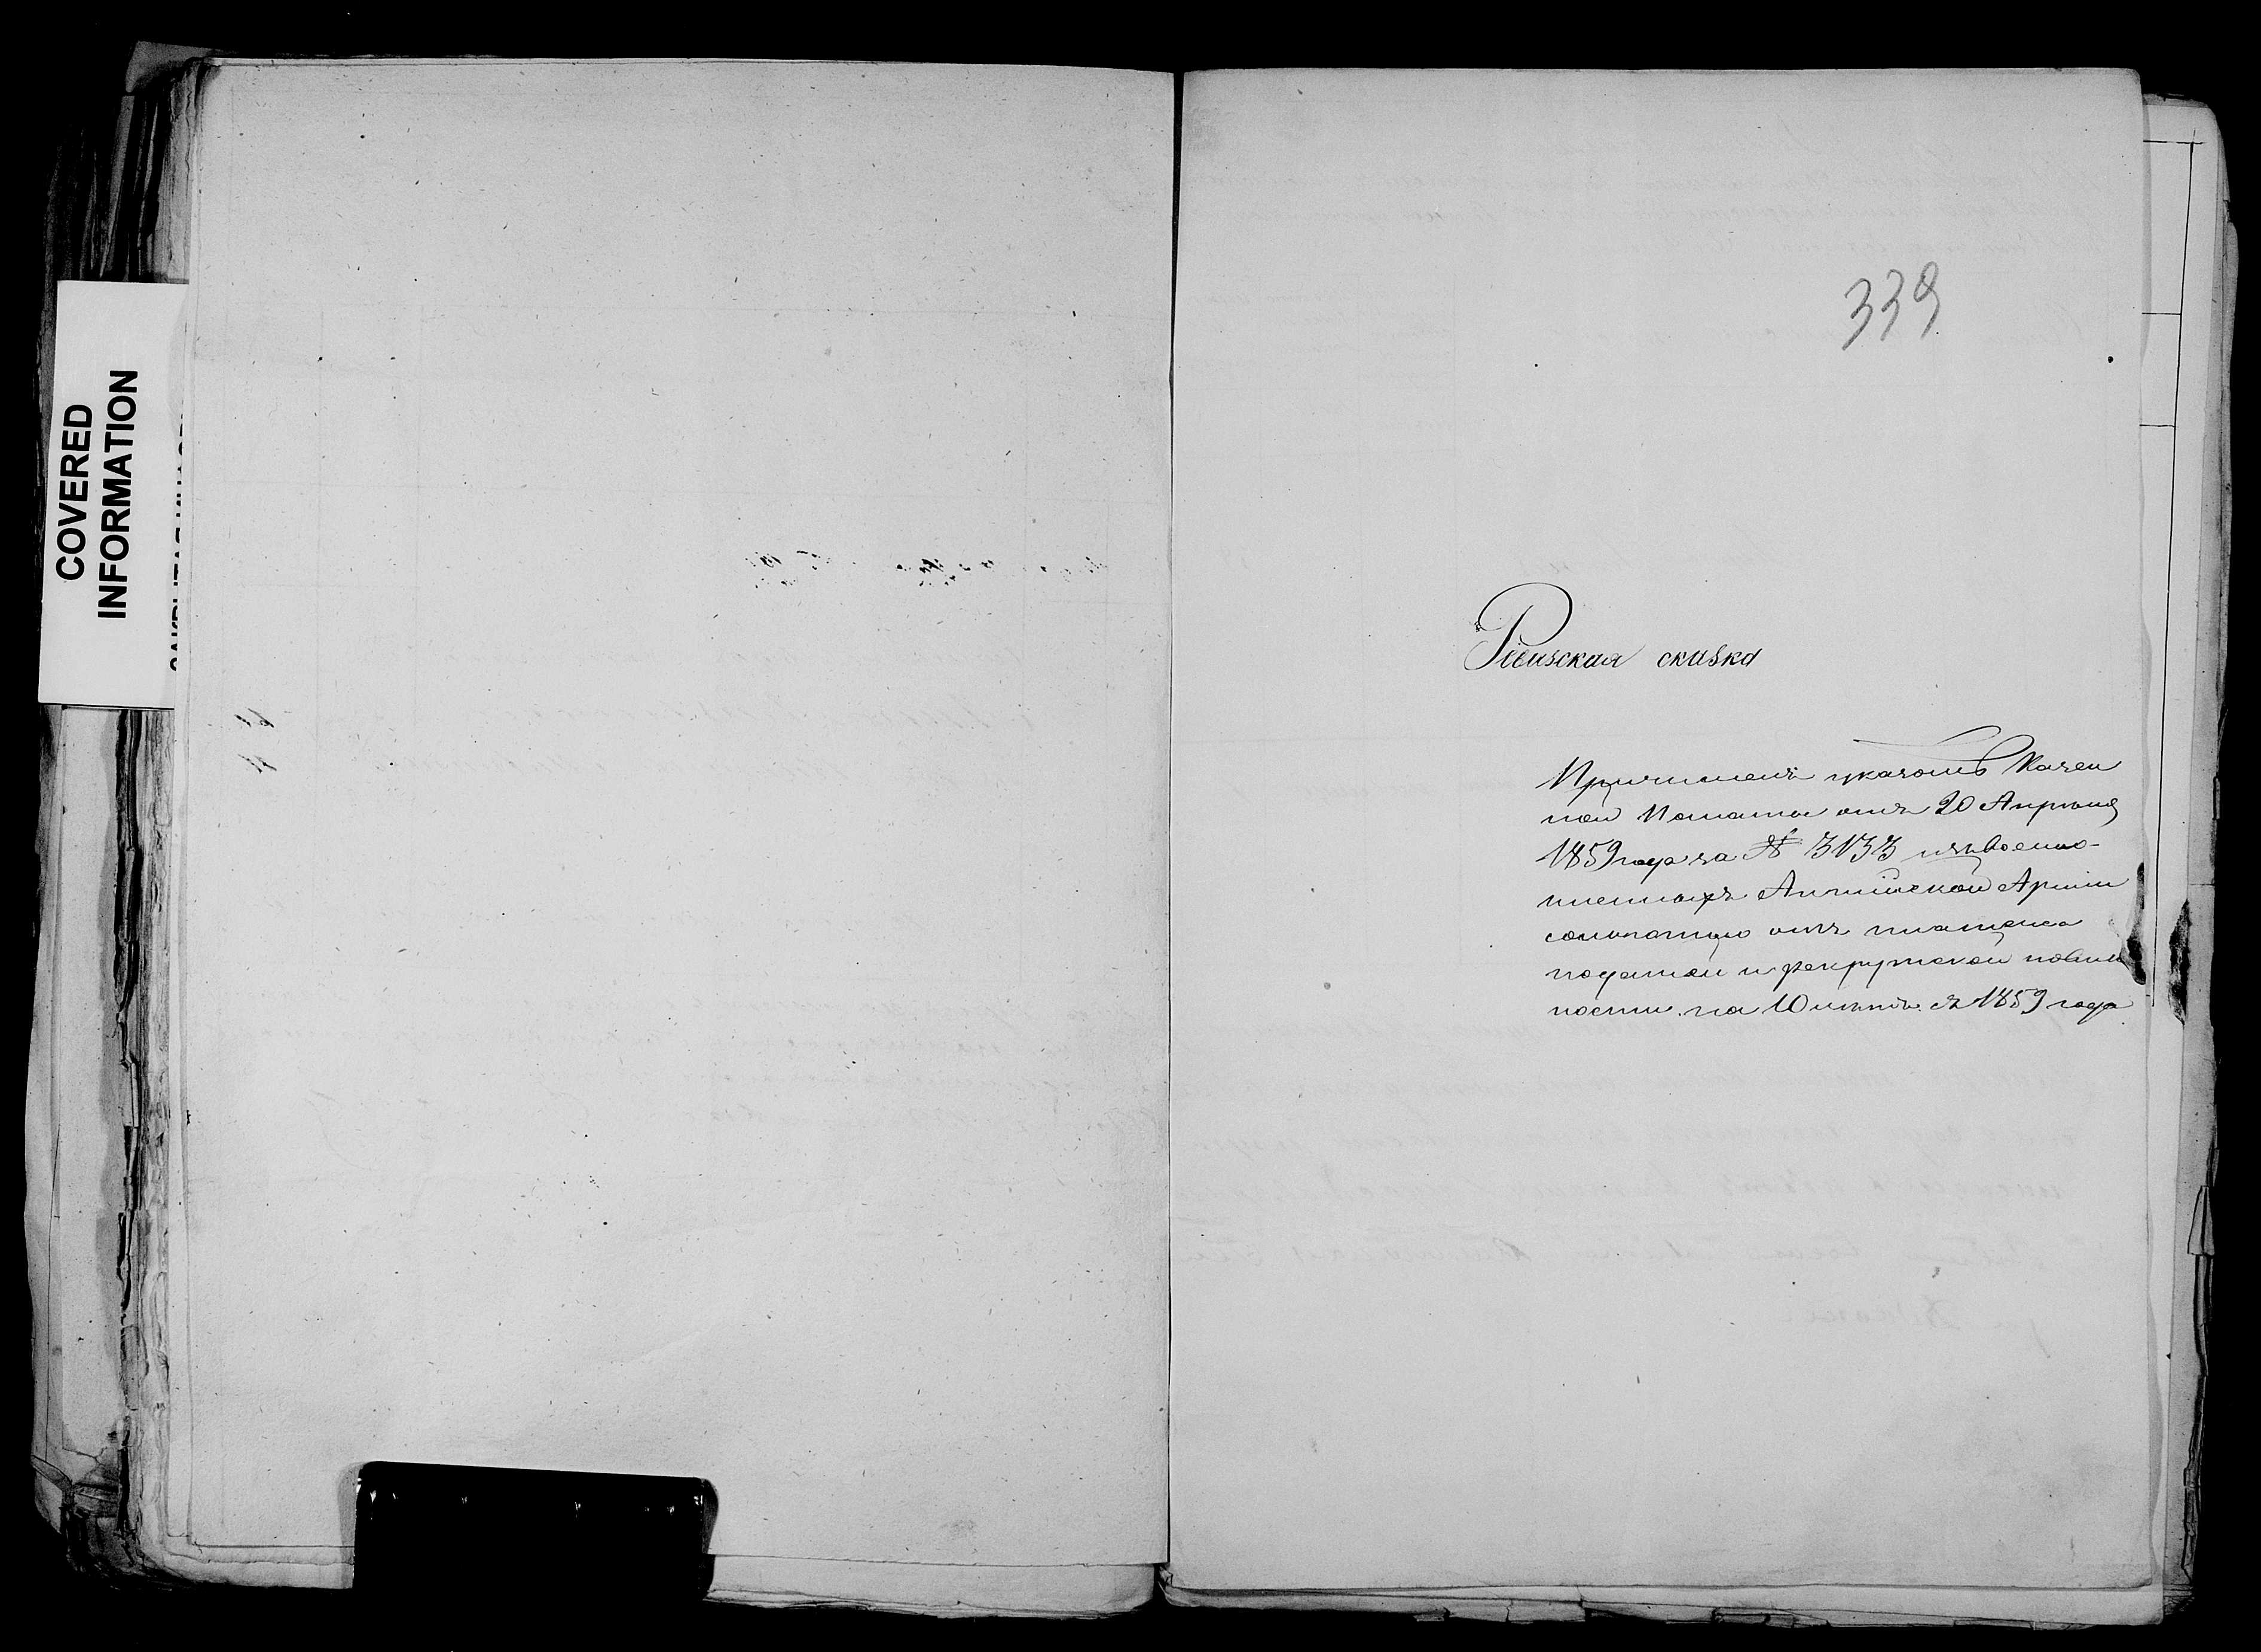 COVERED
INFORMATION
339
Ревизская сказка
Причислен указомъ Казен
ной Палаты отъ 20 Апрѣля
1859 года за № 3133 изъ военно-
пленныхъ Английской Армiи
сольготою отъ платежа
податей и рекрутской повин
ности на 10 лѣтъ съ 1859 года